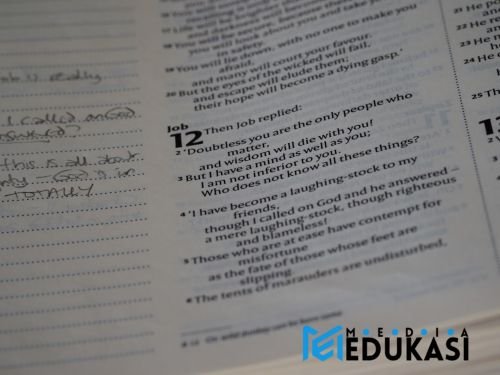 I called on God
this is all about
TOTALLY
you will look about you and take your
in safety.
19 You will lie down, with no one to make you
afraid,
and many will court your favour.
20 But the eyes of the wicked will fail,
and escape will elude them;
their hope will become a dying gasp.'
Job
12 Then Job replied:
2 'Doubtless you are the only people who
matter,
and wisdom will die with you!
3 But I have a mind as well as you;
I am not inferior to you.
Who does not know all these things?
4 'I have become a laughing-stock to my
friends,
though I called on God and he answered –
a mere laughing-stock, though righteous
and blameless!
5 Those who are at ease have contempt for
misfortune
as the fate of those whose feet are
slipping.
6 The tents of marauders are undisturbed,
21 He
23 He
24 He
25 Th
MEDIA
EDUKASI